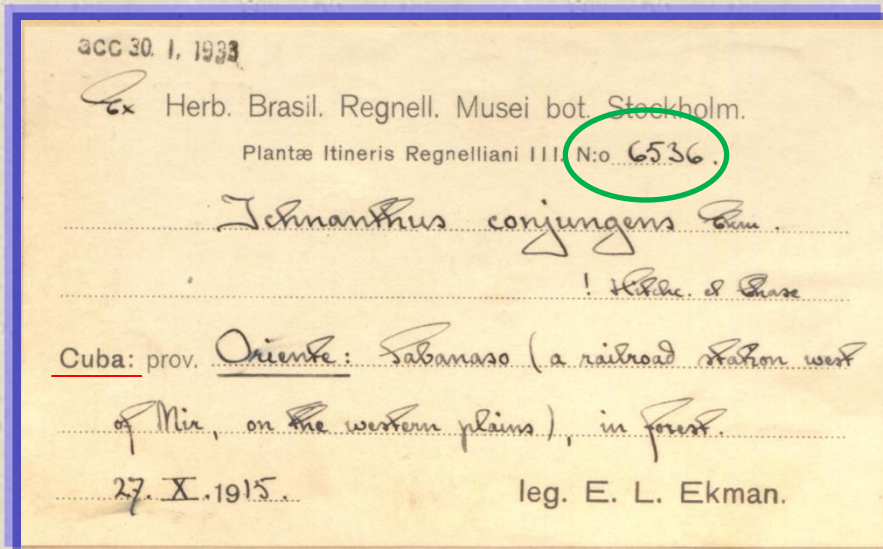 acc 30. I. 1933
Ex Herb. Brasil. Regnell. Musei bot. Stockholm.
Plantæ Itineris Regnelliani III. N:o 6536.
Ichnanthus conjungens Ekm.
! Hitchc. et Chase
Cuba: prov. Oriente: Sabanaso (a railroad station west
of Mir, on the western plains), in forest.
27. X. 1915. leg. E. L. Ekman.